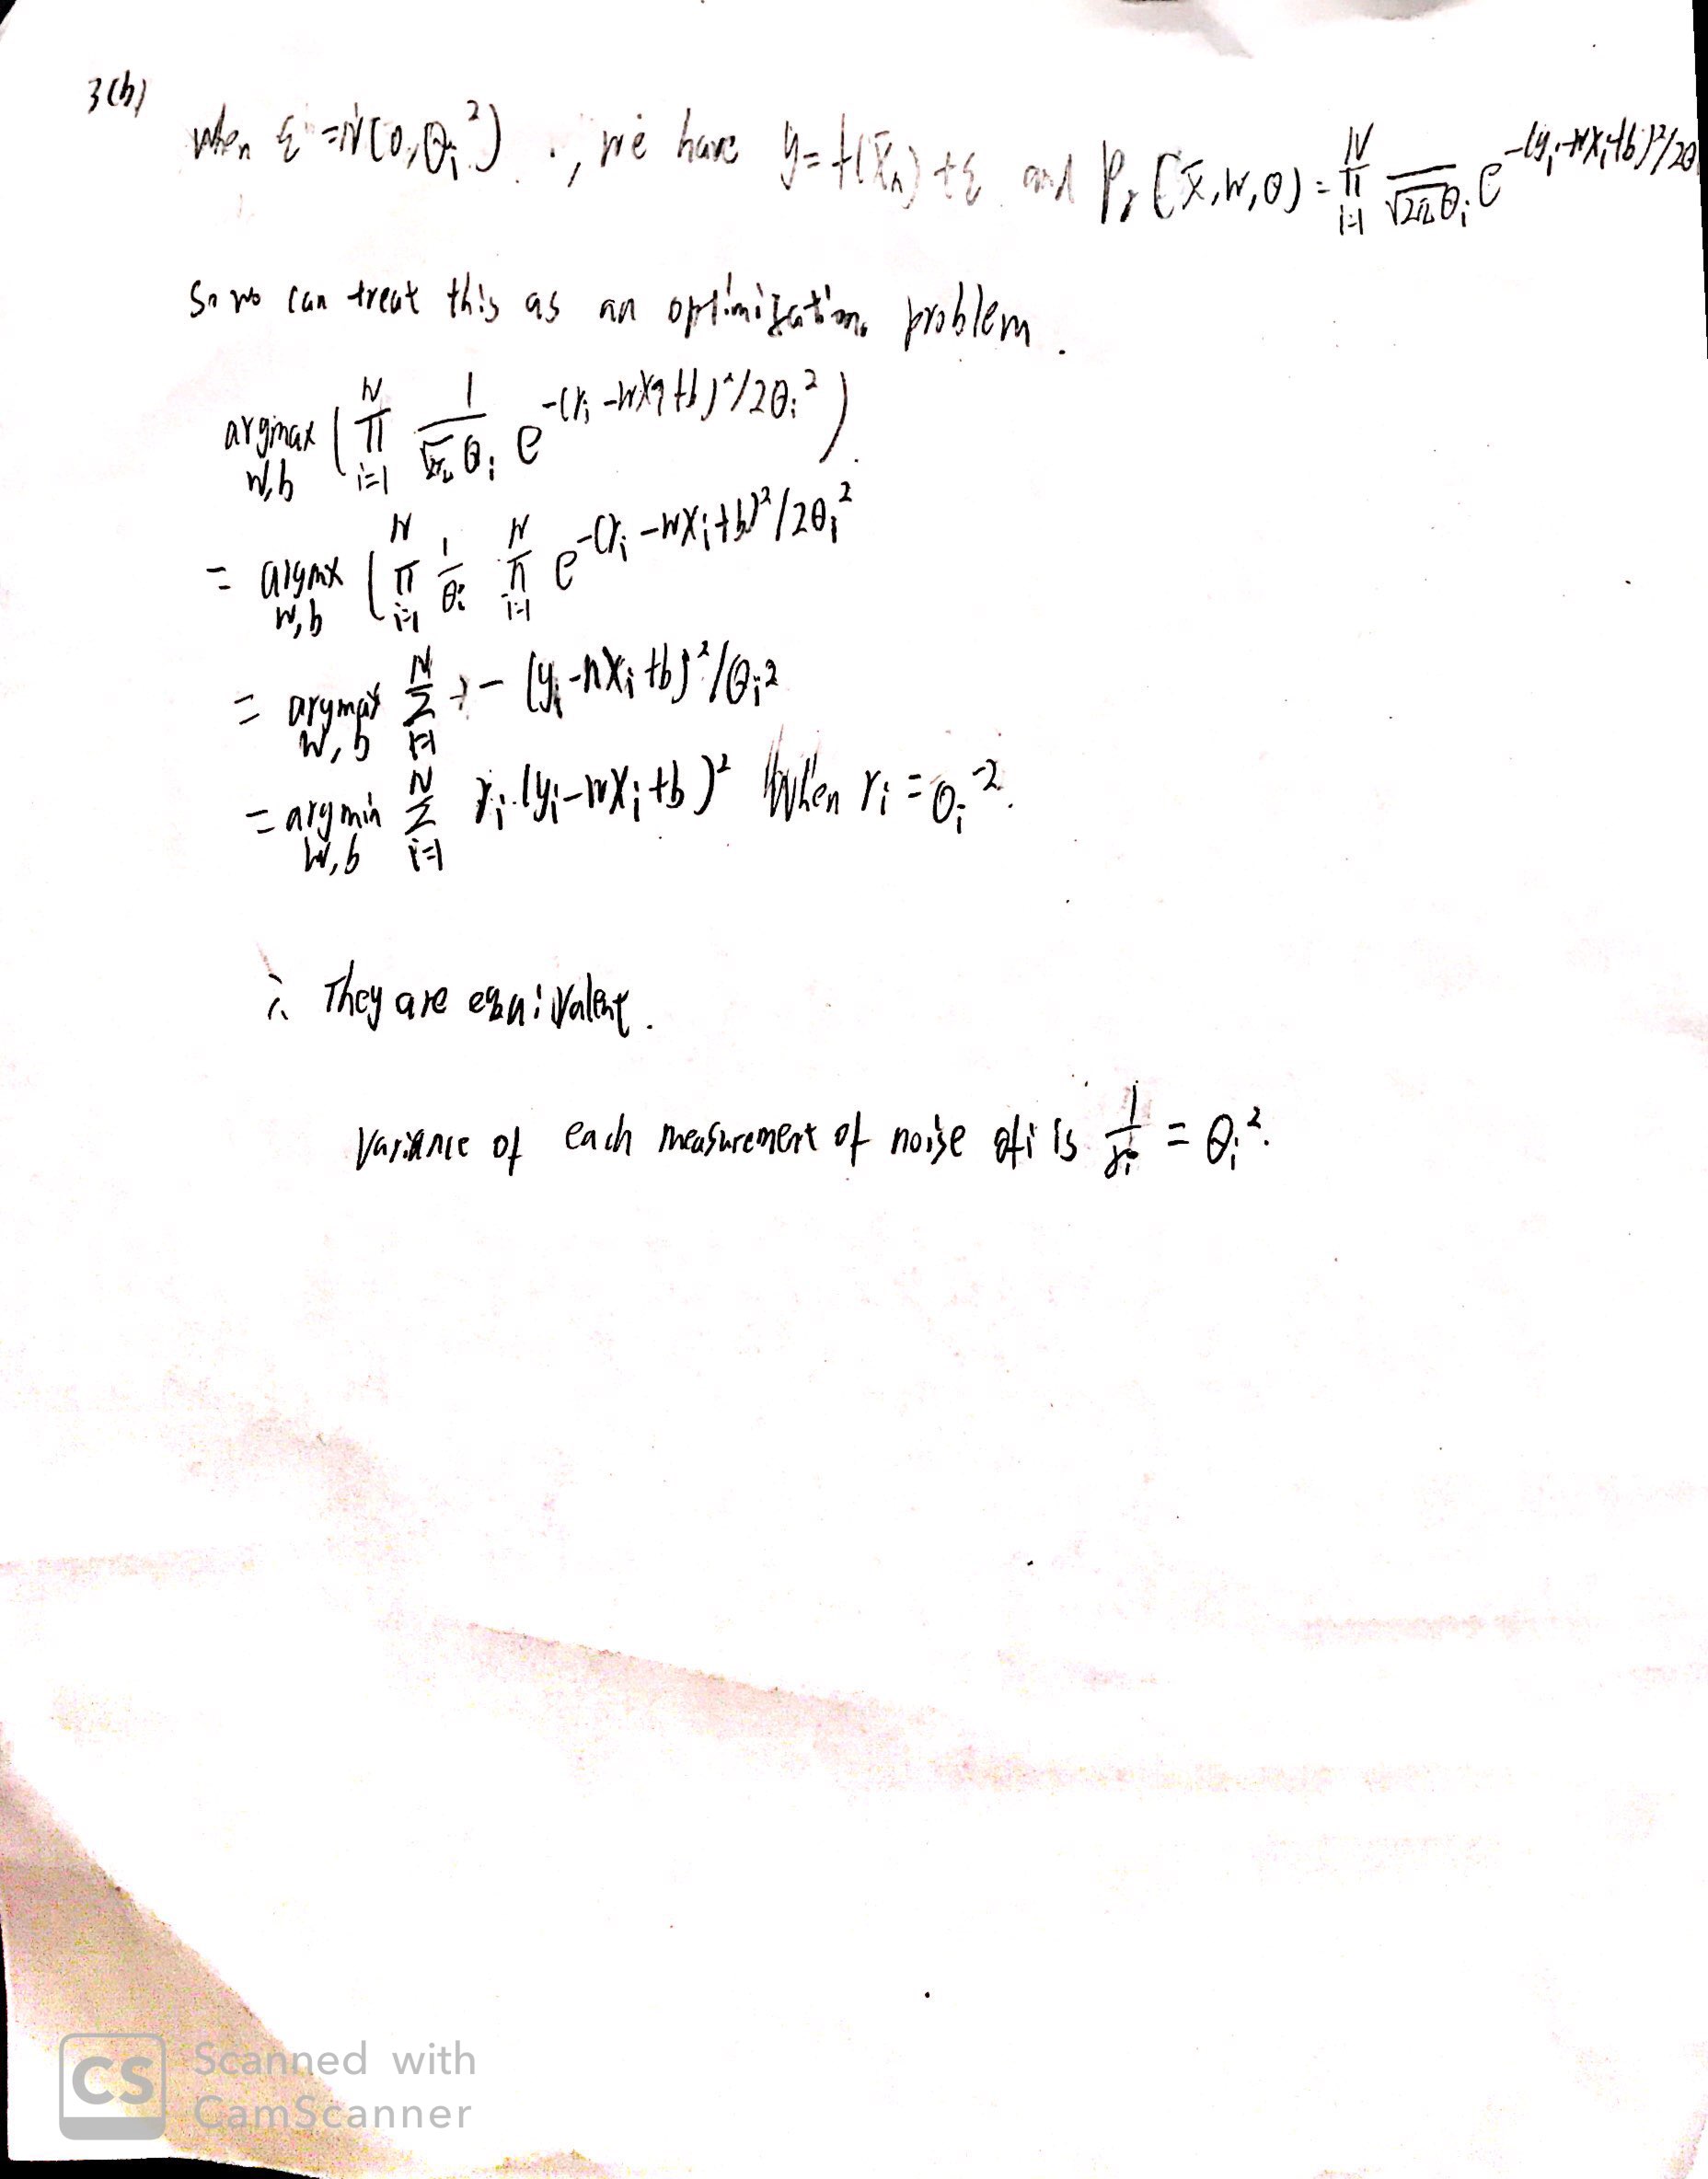 3(b)
when ε = N(0, θᵢ²) ., we have y = f(x̄ₙ) + ε and Pr(x̄, w, θ) = ∏ᵢ₌₁ᴺ 1/√2π θᵢ e^-(yᵢ-wxᵢ+b)²/2θ
So we can treat this as an optimization problem.
argmax w,b (∏ᵢ₌₁ᴺ 1/√2π θᵢ e^-(yᵢ-wxᵢ+b)²/2θᵢ²)
= argmx w,b (∏ᵢ₌₁ᴺ 1/θᵢ ∏ᵢ₌₁ᴺ e^-(yᵢ-wxᵢ+b)²/2θᵢ²
= argmax w,b ∑ᵢ₌₁ᴺ -(yᵢ-wxᵢ+b)²/θᵢ²
= argmin w,b ∑ᵢ₌₁ᴺ rᵢ(yᵢ-wxᵢ+b)² When rᵢ = θᵢ⁻².
∴ They are equivalent.
Variance of each measurement of noise of i is 1/rᵢ = θᵢ².
CS Scanned with
CamScanner